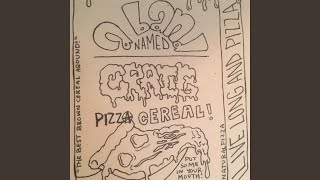 NAMED
CRAIG
PIZZA CEREAL!
"THE BEST BROWN CEREAL AROUND!"
PUT
SOME
IN YOUR
MOUTH!
LIVE LONG AND PIZZA